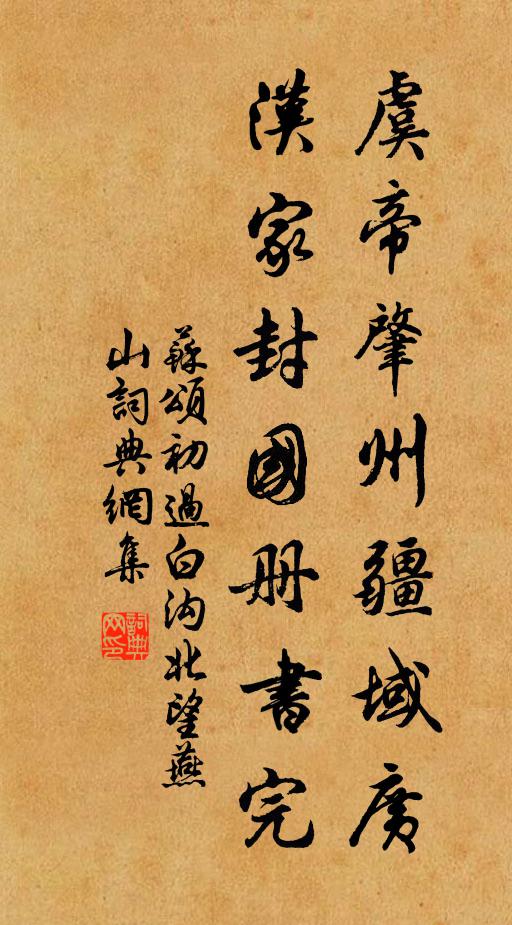 虞帝肇州疆域廣
漢家封國册書完
蘇頌初過白沟北望燕
山詞典網集
詞典
网印